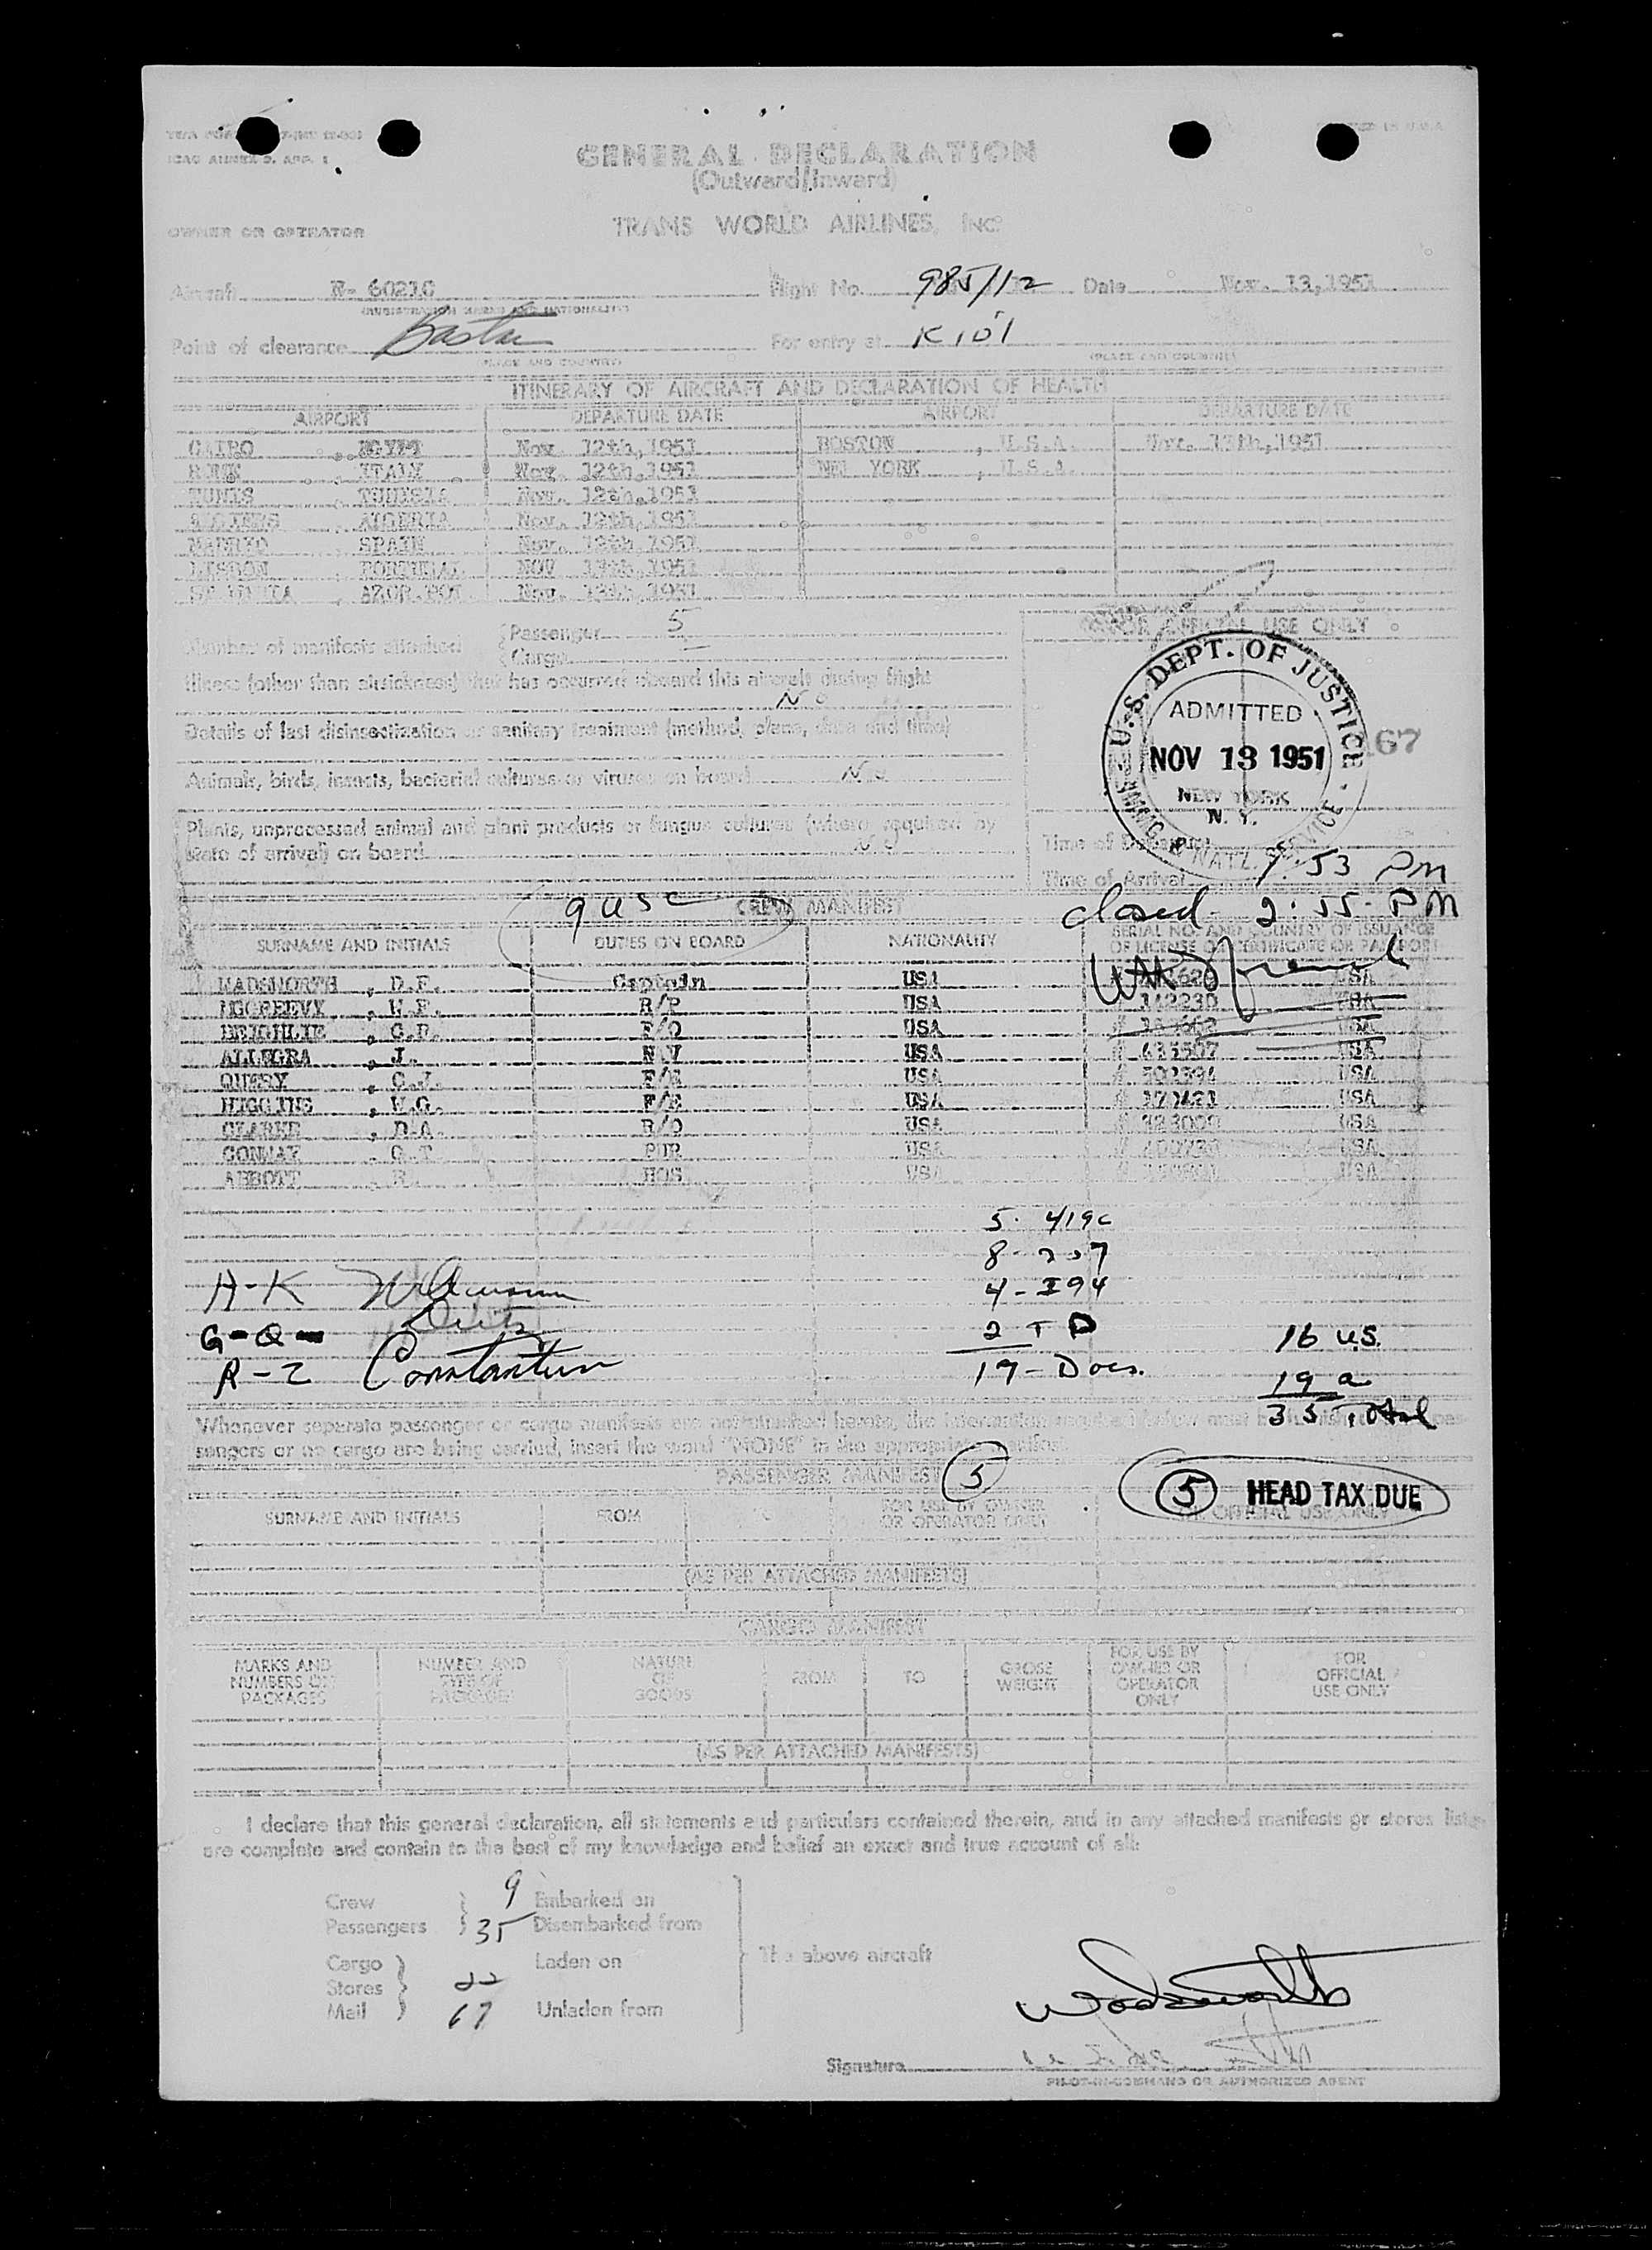 ICAO ANNEX 9, APP. 1
GENERAL DECLARATION
(Outward/Inward)
TRANS WORLD AIRLINES, INC.
OWNER OR OPERATOR
Aircraft N- 6021C Flight No. 985/12 Date Nov. 13, 1951
(REGISTRATION MARKS AND NATIONALITY)
Point of clearance Boston For entry at
(PLACE AND COUNTRY) (PLACE AND COUNTRY)
ITINERARY OF AIRCRAFT AND DECLARATION OF HEALTH
AIRPORT DEPARTURE DATE AIRPORT DEPARTURE DATE
CAIRO , EGYPT Nov. 12th, 1951 BOSTON , U.S.A. Nov. 13th, 1951
ROME , ITALY Nov. 12th, 1951 NEW YORK , U.S.A.
TUNIS , TUNISIA Nov. 12th, 1951
ALGIERS , ALGERIA Nov. 12th, 1951
MADRID , SPAIN Nov. 12th, 1951
LISBON , PORTUGAL NOV 1951
, AZOR. POT. Nov. 13th, 1951
Number of manifests attached Passenger 5
Cargo
FOR OFFICIAL USE ONLY
Illness (other than airsickness) that has occurred aboard this aircraft during flight
No
Details of last disinsectization or sanitary treatment (method, place, date and time)
U.S. DEPT. OF JUSTICE
ADMITTED
NOV 13 1951
NEW YORK
N. Y.
IMMIG. & NAT'Z. SERVICE
67
Animals, birds, insects, bacterial cultures or viruses on board No
Plants, unprocessed animal and plant products or fungus cultures (where required by
state of arrival) on board No
Time of Departure
Time of Arrival 1:53 PM
closed - 2:55 - PM
9 usc CREW MANIFEST
SURNAME AND INITIALS DUTIES ON BOARD NATIONALITY SERIAL NO. AND COUNTRY OF ISSUANCE
OF LICENSE OR CERTIFICATE OR PASSPORT
WADSWORTH , D.F. Captain USA USA
MCGREEVY , W.F. R/P USA USA
F/O USA USA
ALLEGRA , J. NAV USA # 435507 USA
QUERY , C.J. F/E USA USA
HIGGINS , W.G. F/E USA USA
CLARKE , D.A. R/O USA USA
CONWAY G.T. PUR USA USA
ABBOTT HOS USA USA
5. 419c
8 - 257
A-K 4 - I94
G-Q- 2 T D 16 U.S.
R-Z Constantine 19 - Docs. 19 a
35 Total
Whenever separate passenger or cargo manifests are not attached hereto, the information required below must be furnished.
sengers or no cargo are being carried, insert the word "NONE" in the appropriate manifest.
PASSENGER MANIFEST 5
5 HEAD TAX DUE
SURNAME AND INITIALS FROM TO FOR USE BY OWNER
OR OPERATOR ONLY FOR OFFICIAL USE ONLY
(AS PER ATTACHED MANIFESTS)
CARGO MANIFEST
MARKS AND
NUMBERS ON
PACKAGES
NUMBER AND
TYPE OF
PACKAGES
NATURE
OF
GOODS
FROM
TO
GROSS
WEIGHT
FOR USE BY
OWNER OR
OPERATOR
ONLY
FOR
OFFICIAL
USE ONLY
(AS PER ATTACHED MANIFESTS)
I declare that this general declaration, all statements and particulars contained therein, and in any attached manifests or stores lists
are complete and contain to the best of my knowledge and belief an exact and true account of all:
Crew 9 Embarked on
Passengers 35 Disembarked from
Cargo Laden on The above aircraft
Stores 22
Mail 67 Unladen from
Wadsworth
Signature
PILOT-IN-COMMAND OR AUTHORIZED AGENT